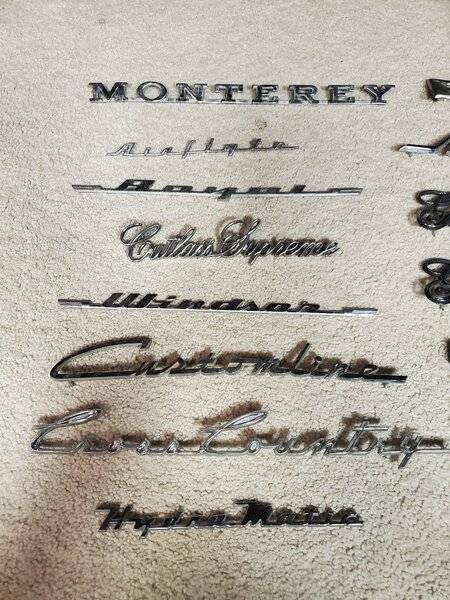 MONTEREY
Airflyte
Royal
Cutlass Supreme
Windsor
Customline
Cross Country
Hydra Matic